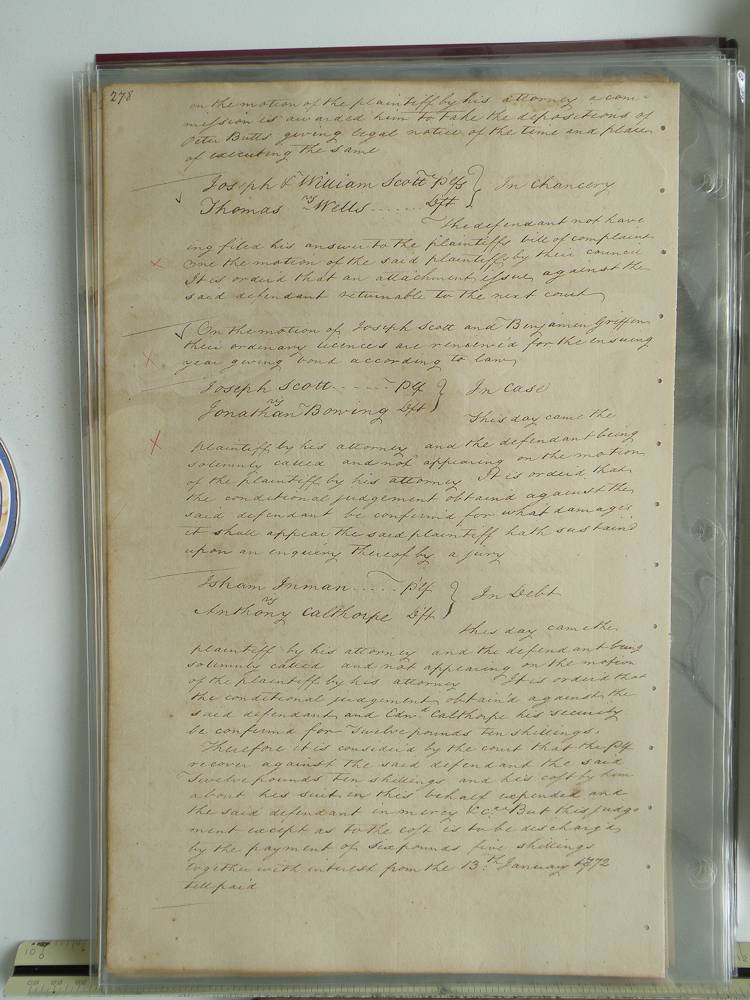 278
on the motion of the plaintiff by his attorney a com-
mission is awarded him to take the depositions of
Peter Butts giving legal notice of the time and place
of executing the same
Joseph & William Scott Plfs } In Chancery
vs
Thomas Wells ...... Dft
The defendant not have
ing filed his answer to the plaintiffs bill of complaint
One the motion of the said plaintiffs by their council
It is orderd that an attachment issue against the
said defendant returnable to the next court
On the motion of Joseph Scott and Benjamin Griffin
their ordinary licences are renewed for the ensuing
year giving bond according to law
Joseph Scott ..... Plf } In Case
vs
Jonathan Bowing Dft
This day came the
plaintiff by his attorney and the defendant being
solemnly called and not appearing on the motion
of the plaintiff by his attorney It is orderd that
the conditional judgement obtaind against the
said defendant be confirmd for what damages
it shall appear the said plaintiff hath sustaind
upon an enquiry thereof by a jury
Isham Inman ..... Plf } In Debt
vs
Anthony Calthorpe Dft
This day came the
plaintiff by his attorney and the defendant being
solemnly called and not appearing on the motion
of the plaintiff by his attorney It is orderd that
the conditional judgement obtain'd against the
said defendant and Edwd Calthorpe his security
be confirmd for Twelve pounds ten shillings.
Therefore it is consider'd by the court that the Plf
recover against the said defendant the said
Twelve pounds ten shillings and his cost by him
about his suit in this behalf expended and
the said defendant in mercy &c. But this judge
ment except as to the cost is to be discharg'd
by the payment of Six pounds five shillings
together with interest from the 13th January 1772
till paid